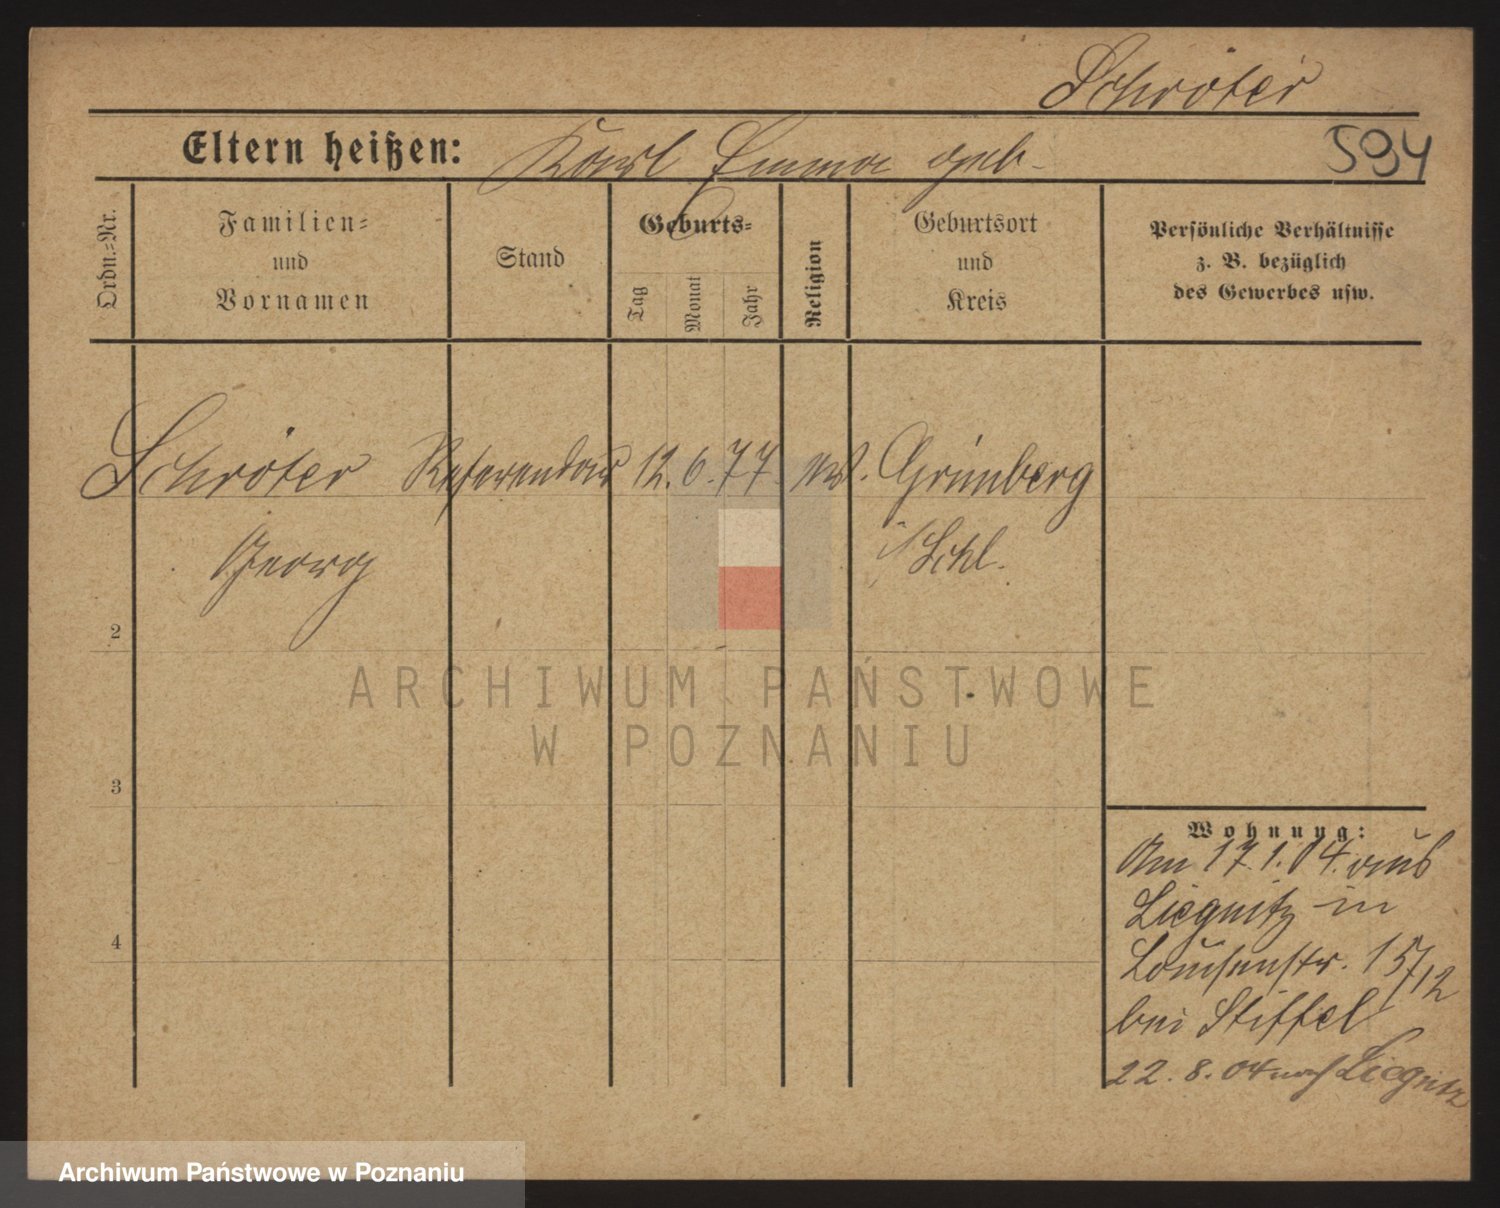 Schröter
Eltern heißen: Karl Emma geb.
594
Ordn.-Nr.
Familien-
und
Vornamen
Stand
Geburts-
Tag
Monat
Jahr
Religion
Geburtsort
und
Kreis
Persönliche Verhältnisse
z. B. bezüglich
des Gewerbes usw.
Schröter Referendar 12. 6. 77. ev. Grünberg
Georg i/Schl.
2
3
4
Wohnung:
Am 17.1.04. aus
Liegnitz in
Louisenstr. 15/12
bei Stiffel
22. 8. 04 nach Liegnitz
ARCHIWUM PAŃSTWOWE
W POZNANIU
Archiwum Państwowe w Poznaniu